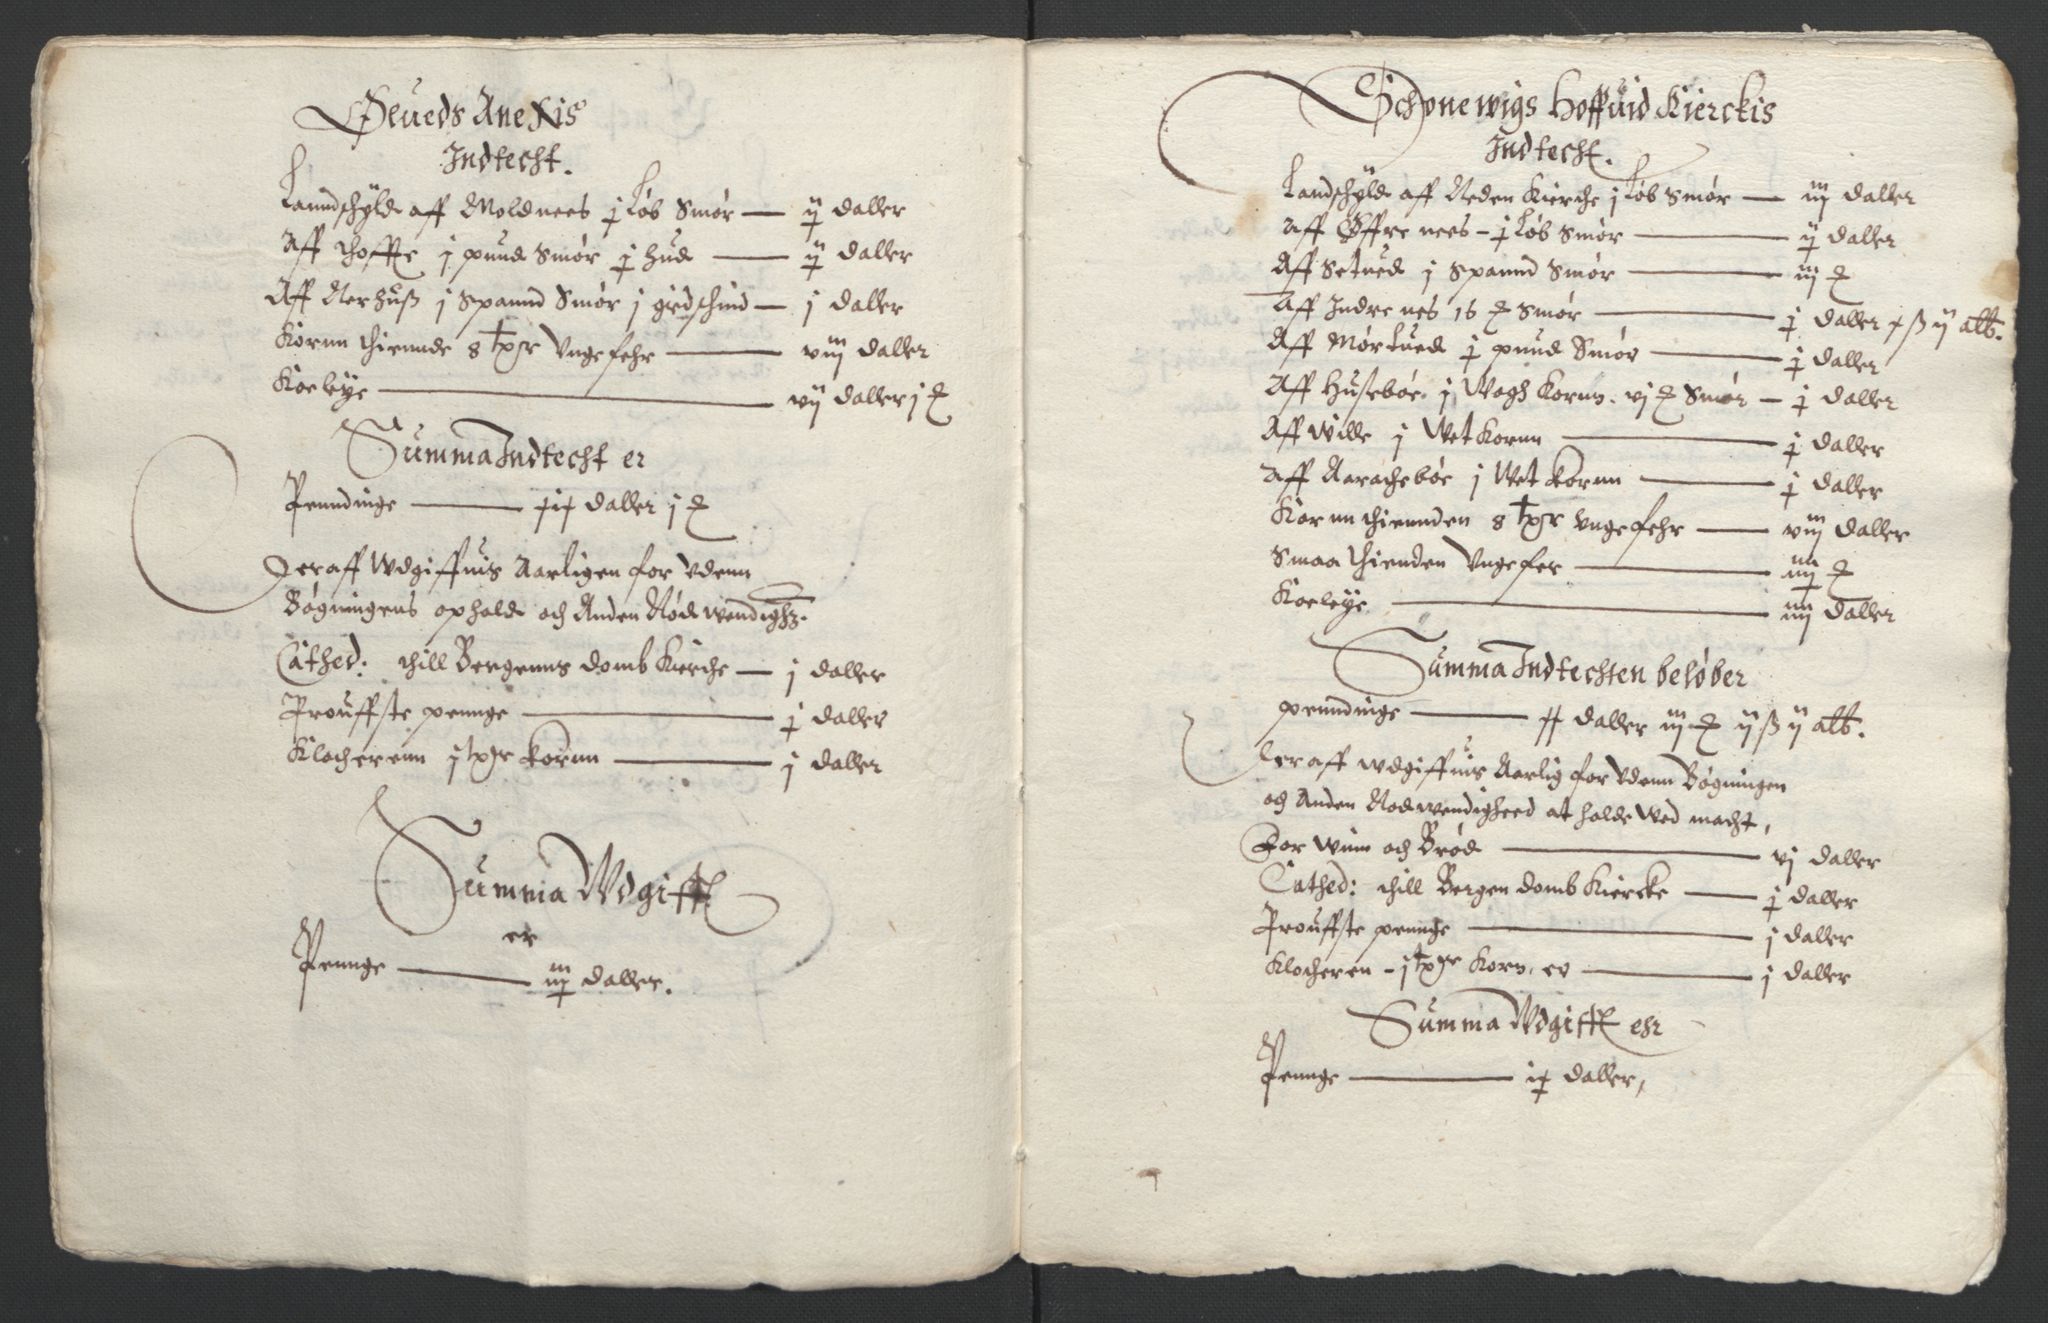 Ølueds Anexis
Indtecht.
Lanndschyld aff Moldnees j Løb Smør — ij daller
Aff Thoffte j pund Smør j Hud — ij daller
Aff Nerhuß j Spannd Smør j giedschind — j daller
Kornn thiennde 8 tpr Vngefehr — viij daller
Koeleye — vij daller j
Summa Indtecht er
Penndinge — daller j
Deraff Wdgiffuis Aarligen for vdenn
Bøgningens ophold och Anden Nødwendighz.
Cathed: thill Bergenns domb Kierche — j daller
Prouffste pennge — j daller
Klocherenn j tpr kornn — j daller
Summa Wdgifft
er
Pennge — iij daller.
Schonewigs Hoffuid Kierckis
Indtecht.
Landschyld aff Neden Kierche j Løb Smør — iij daller
Aff Øffre nees - j Løb Smør — ij daller
Aff Setued j Spannd Smør — iij
Aff Indre nes 16 Smør — j daller ß ij alb.
Aff Mørtued j pund Smør — j daller
Aff Husebøe j Wogh Kornn. vj Smør — j daller
Aff Wille j Wet Kornn — j daller
Aff Aarachebøe j Wet kornn — j daller
Kornn thiennden 8 tpr Vngefehr — viij daller
Smaa thienden Vngefer — iiij
Koeleye — iiij daller
Summa Indtechten beløber
penndinge — daller iij ij ß ij alb.
Deraff wdgiffuis Aarlig for vdenn Bøgningen
och Anden Nodwendigheed at holde wed macht,
For Wiin och Brød — vj daller
Cathed: thill Bergen domb Kiercke — j daller
Prouffste pennge — j daller
Klocheren - j tpr Korn, er — j daller
Summa Wdgifft ehr
Pennge — ix daller,